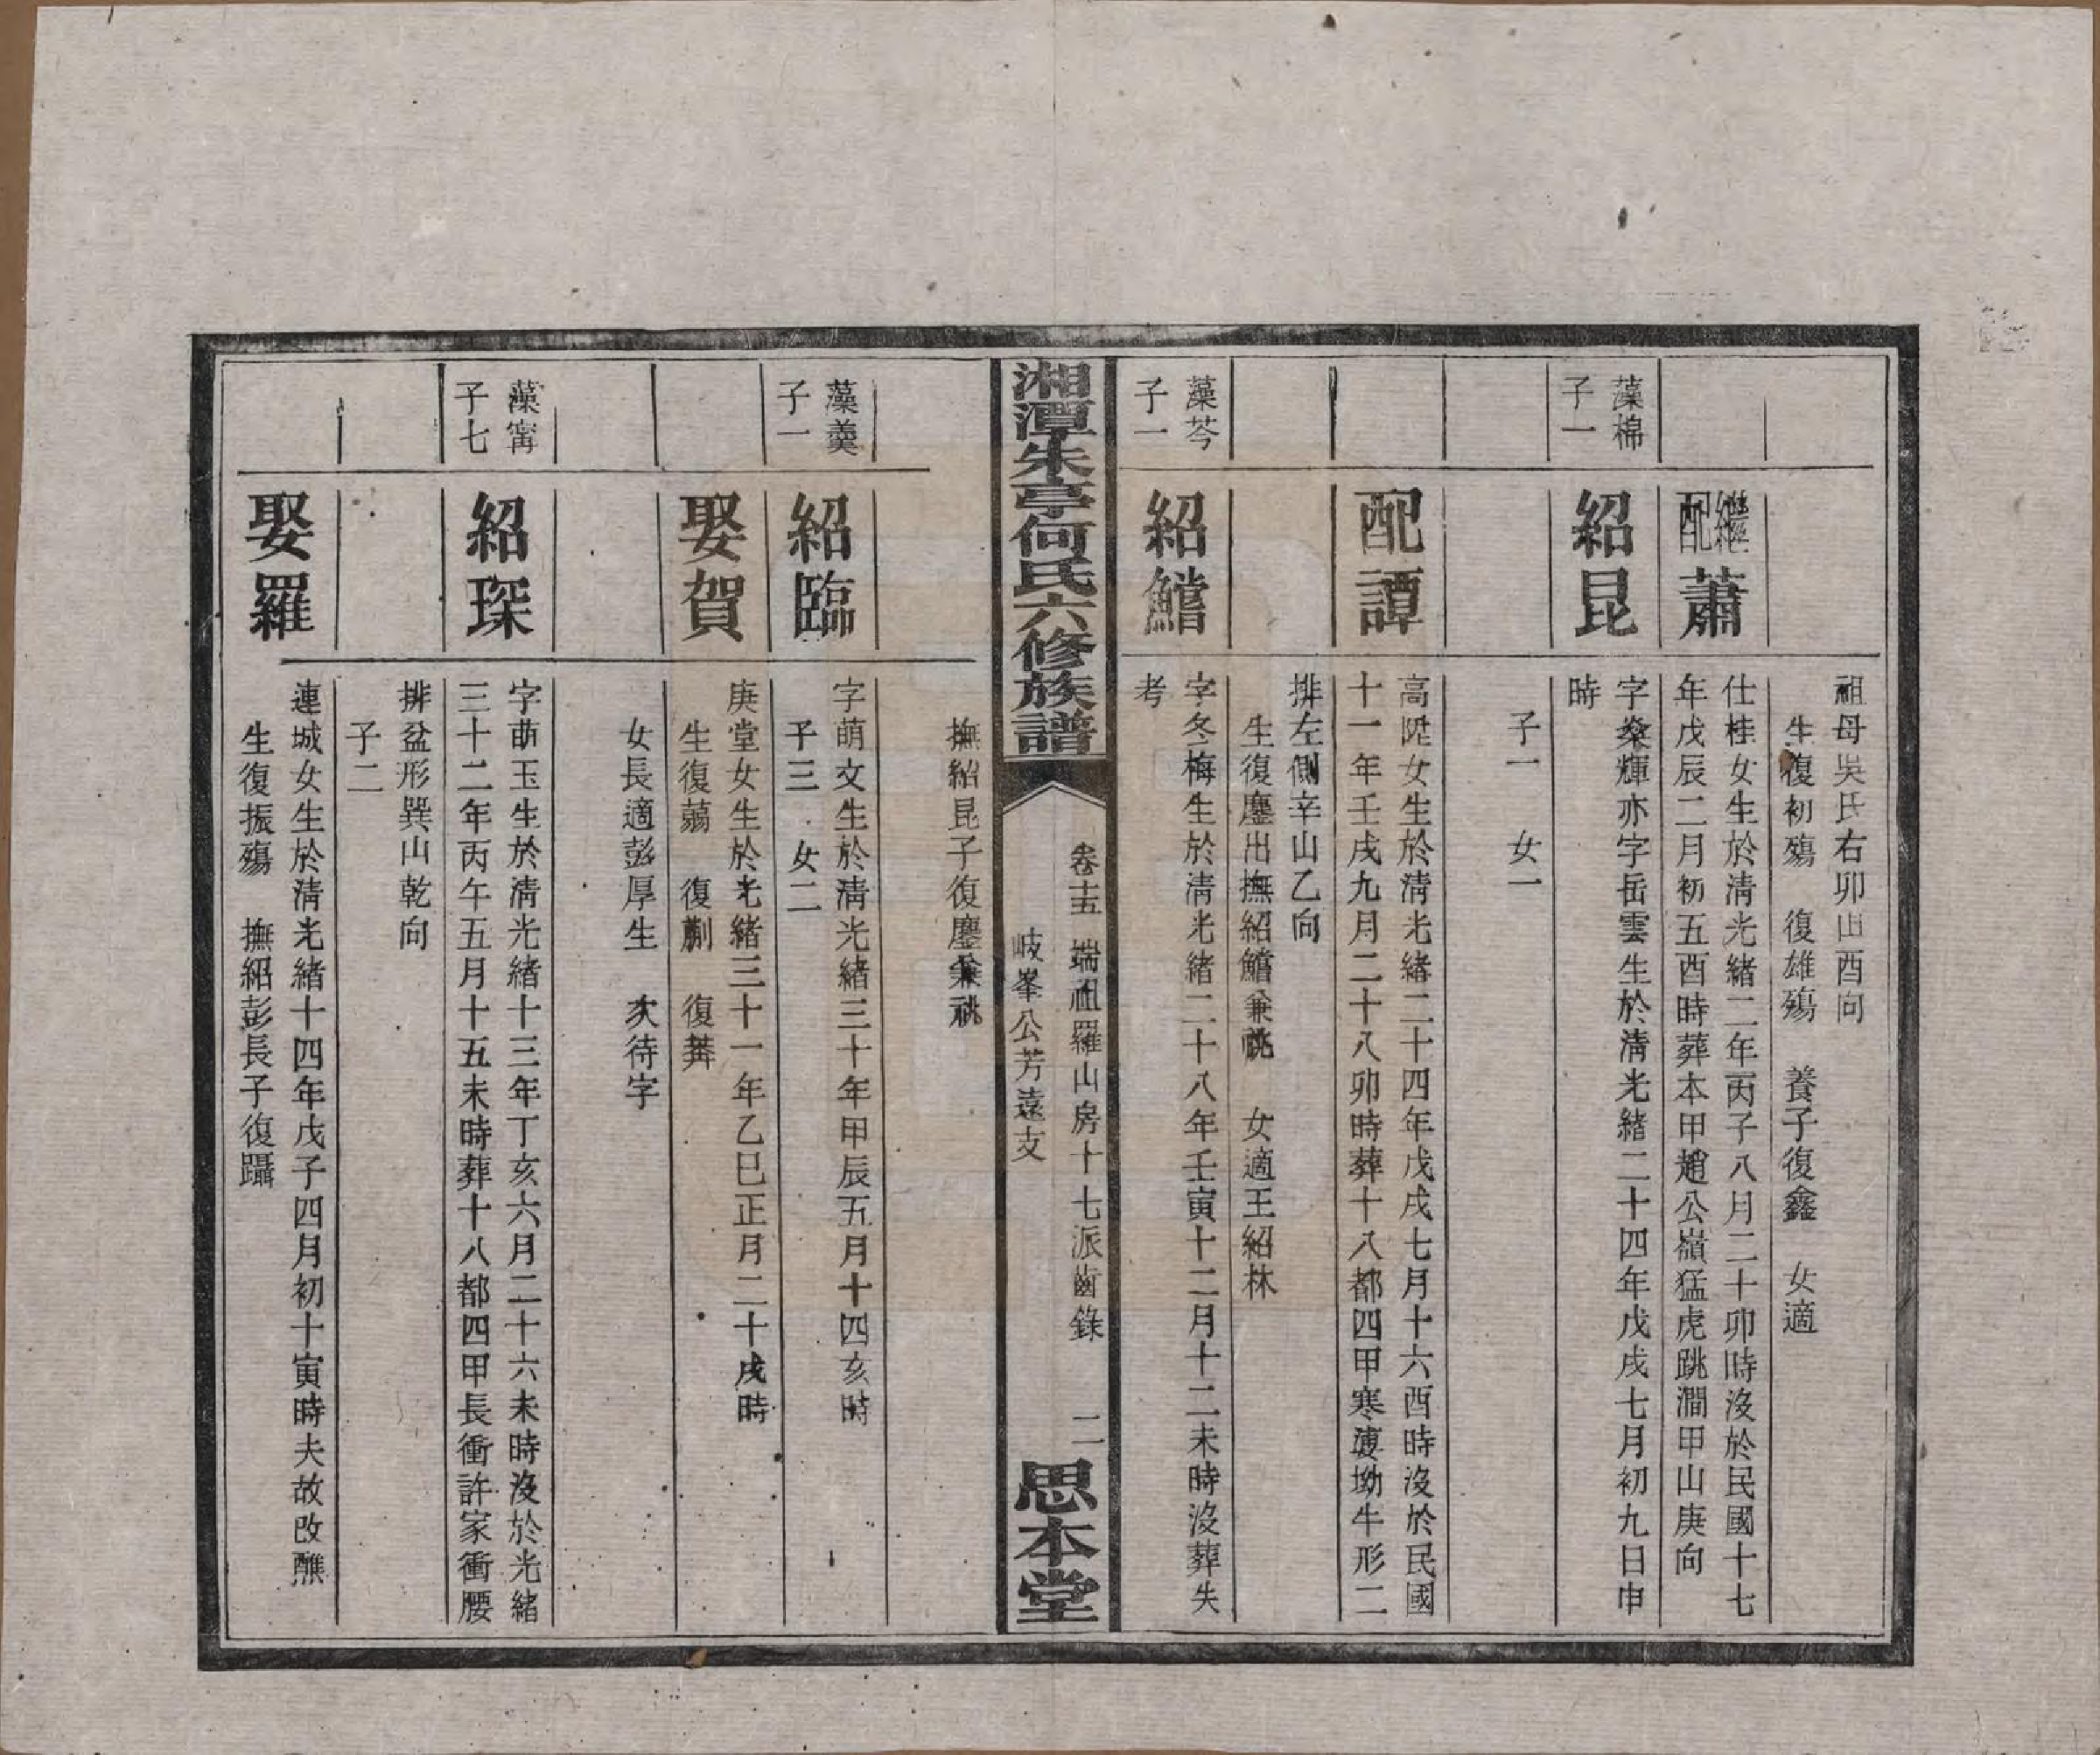 祖母吳氏右卯山酉向
生復初殤　復雄殤　養子復鑫　女適
繼配蕭
仕桂女生於清光緒二年丙子八月二十卯時沒於民國十七
年戊辰二月初五酉時葬本甲趙公嶺猛虎跳澗甲山庚向
藻棉
子一
紹昆
字燊輝亦字岳雲生於清光緒二十四年戊戌七月初九日申
時
子一　女一
配譚
高陞女生於清光緒二十四年戊戌七月十六酉時沒於民國
十一年壬戌九月二十八卯時葬十八都四甲寒婆坳牛形二
排左側辛山乙向
生復鏖出撫紹鱛兼祧　女適王紹林
藻芩
子一
紹鱛
字冬梅生於清光緒二十八年壬寅十二月十二未時沒葬失
考
湘潭朱亭何氏六修族譜
卷十五　端祖羅山房十七派齒錄　二
岐峯公芳遠支
思本堂
撫紹昆子復鏖兼祧
藻羹
子一
紹臨
字萌文生於清光緒三十年甲辰五月十四亥時
子三　女二
娶賀
庚堂女生於光緒三十一年乙巳正月二十戌時
生復蒻　復蒯　復萁
女長適彭厚生　次待字
藻甯
子七
紹琛
字萌玉生於清光緒十三年丁亥六月二十六未時沒於光緒
三十二年丙午五月十五未時葬十八都四甲長衝許家衝腰
排盆形巽山乾向
子二
娶羅
連城女生於清光緒十四年戊子四月初十寅時夫故改醮
生復振殤　撫紹彭長子復躡